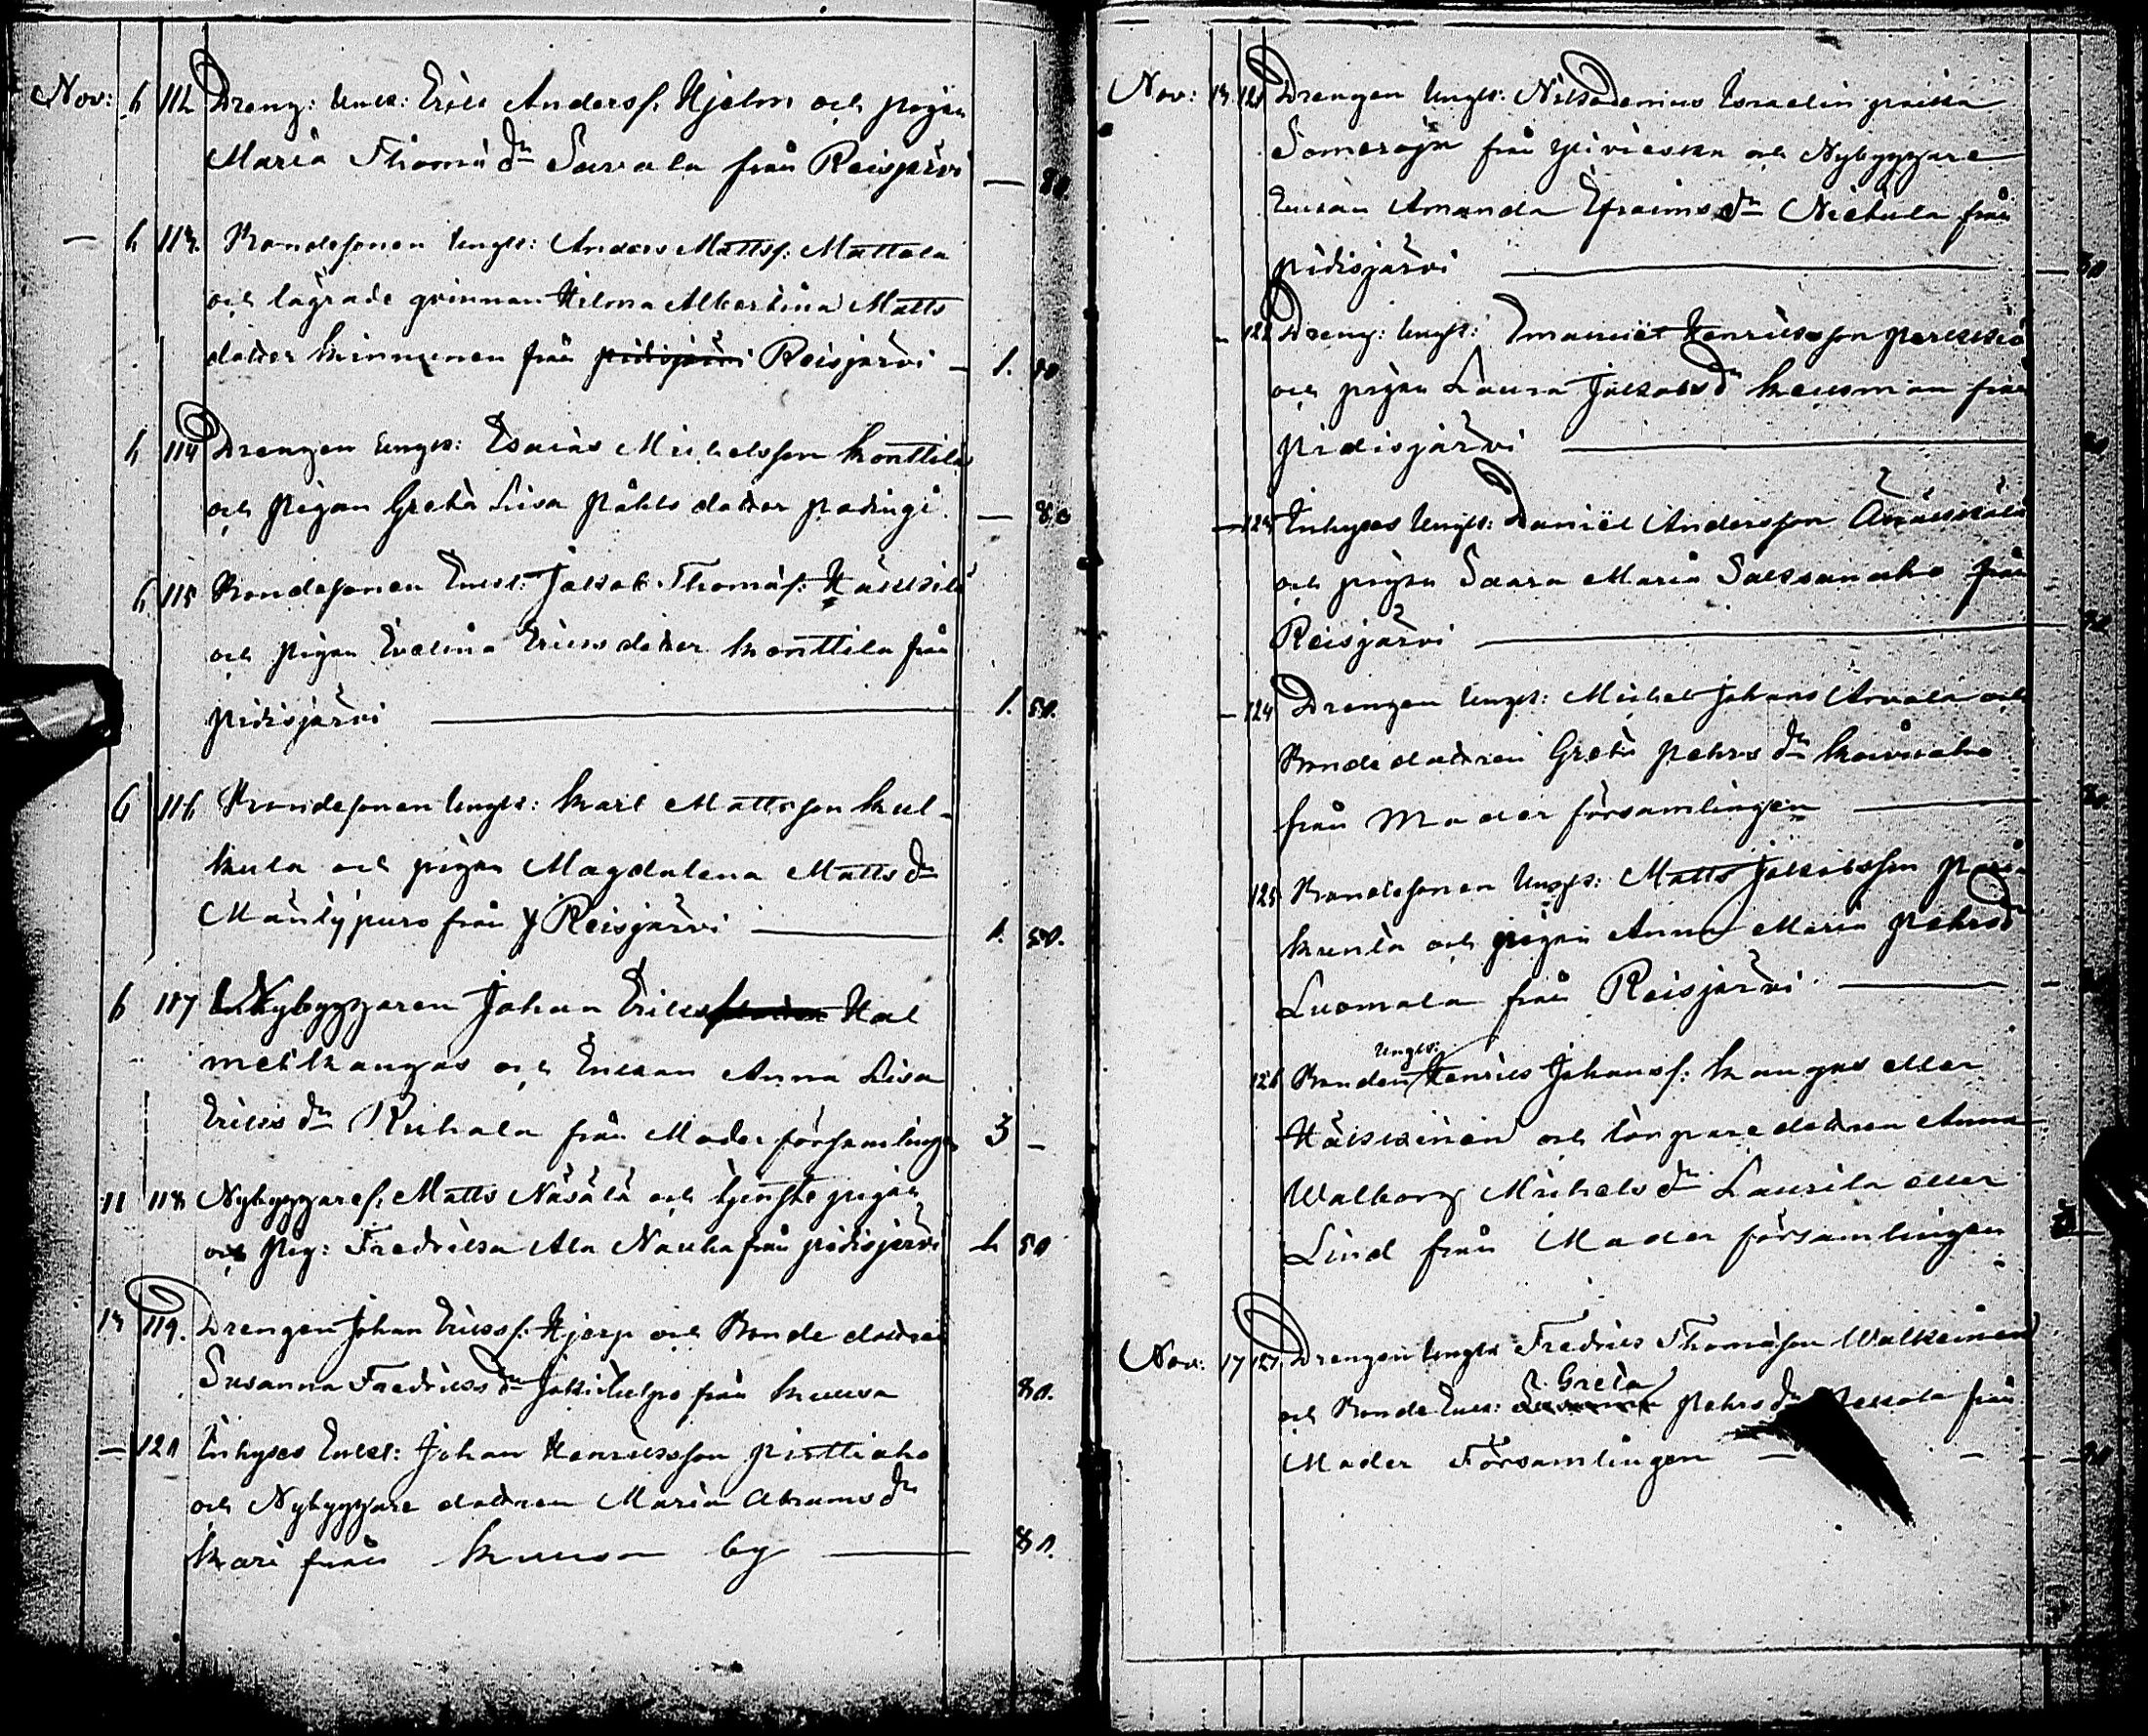 Nov: 6 112 Dreng: Enkl: Erik Anders s. Hjelm och pigan
Maria Thomæ dr Savala från Reisjärvi — 80.
— 6 113. Bondesonen Ungk: Anders Matts s: Mattala
och lägrade qvinnan Hilma Albertina Matts
dotter Kinnunen från Pidisjärvi Reisjärvi — 1. 50
6 114 Drengen Ungk: Esaias Michelsson Konttila
och Pigan Greta Lisa Påhls dotter Padingi — 80
6 115 Bondesonen Enkl: Jakob Thomæ s:
och Pigan Evelina Eriks dotter Konttila från
Pidisjärvi — 1. 50.
6 116 Bondesonen Ungk: Karl Mattsson Kul-
kula och pigan Magdalena Matts dr
Mäntypuro från Reisjärvi — 1. 50.
6 117 Nybyggaren Johan Eriks Hal
metkangas och Enkan Anna Lisa
Eriks dr Ruhala från Moderförsamlingen 3 —
11 118 Nybyggare s. Matts Näsälä och tjenstepigan
och Pig: Fredrika Ala Nauha från Pidisjärvi 1. 50
13 119. Drengen Johan Eriks s: Hjerp och Bonde dottren
Susanna Fredriks dr från Kuusa 80.
— 120 Inhyses Enkl: Johan Henriksson Pinttiaho
och Nybyggare dottren Maria Abrams dr
Kari från Kuusa by — 80.
Nov: 13. 121 Drengen Ungk: Nikodemus Israelin poika
Someroja från Ylivieska och Nybyggare
Enkan Amanda Efraims dr Niekula från
Pidisjärvi — 80
122 Dreng: Ungk: Imanuel Henriksson
och pigan Laura Jakobs dr Keusman från
Pidisjärvi — 80
— 123 Inhyses Ungk: Daniel Andersson
och pigan Saara Maria Saksanaho från
Reisjärvi — 80
— 124 Drengen Ungk: Michel Johans Arvala och
Bonde dottren Greta Pehrs dr Koivuaho
från Moder församlingen — 80
125 Bondesonen Ungk: Matts Jakobsson
och pigan Anna Maria Pehrs dr
Luomala från Reisjärvi —
126 Bonden Ungk: Henrik Johans s: Kangas eller
Häikkinen och torpare dottren Anna
Walborg Michels dr Laurila eller
Lind från Moder församlingen
Nov: 17 127. Drengen Ungk: Fredrik Thomasson Walkeinen
och Bonde Enk: Susanna Greta Pehrs dr från
Moder Församlingen — 80